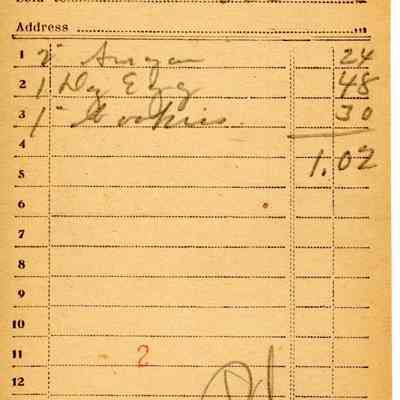 Sold to
Address
1 2# Sugar 24
2 1 Dz Egg 48
3 1# Cookies 30
4
5 1.02
6
7
8
9
10
11 2
12 Pd